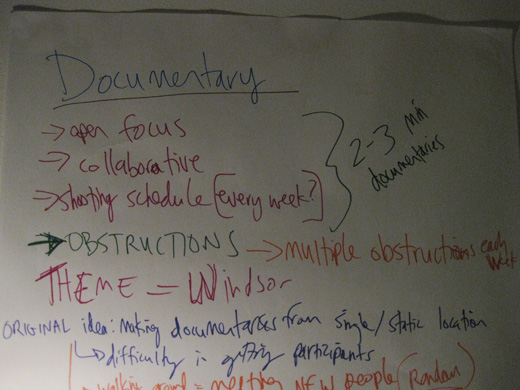 Documentary
→ open focus
→ collaborative
→ shooting schedule [every week?]
2-3 min
documentaries
→ OBSTRUCTIONS → multiple obstructions each
week
THEME = Windsor
ORIGINAL idea: Making documentaries from single/static location
↳ difficulty in getting participants
↳ walking around = meeting NEW people (Random)